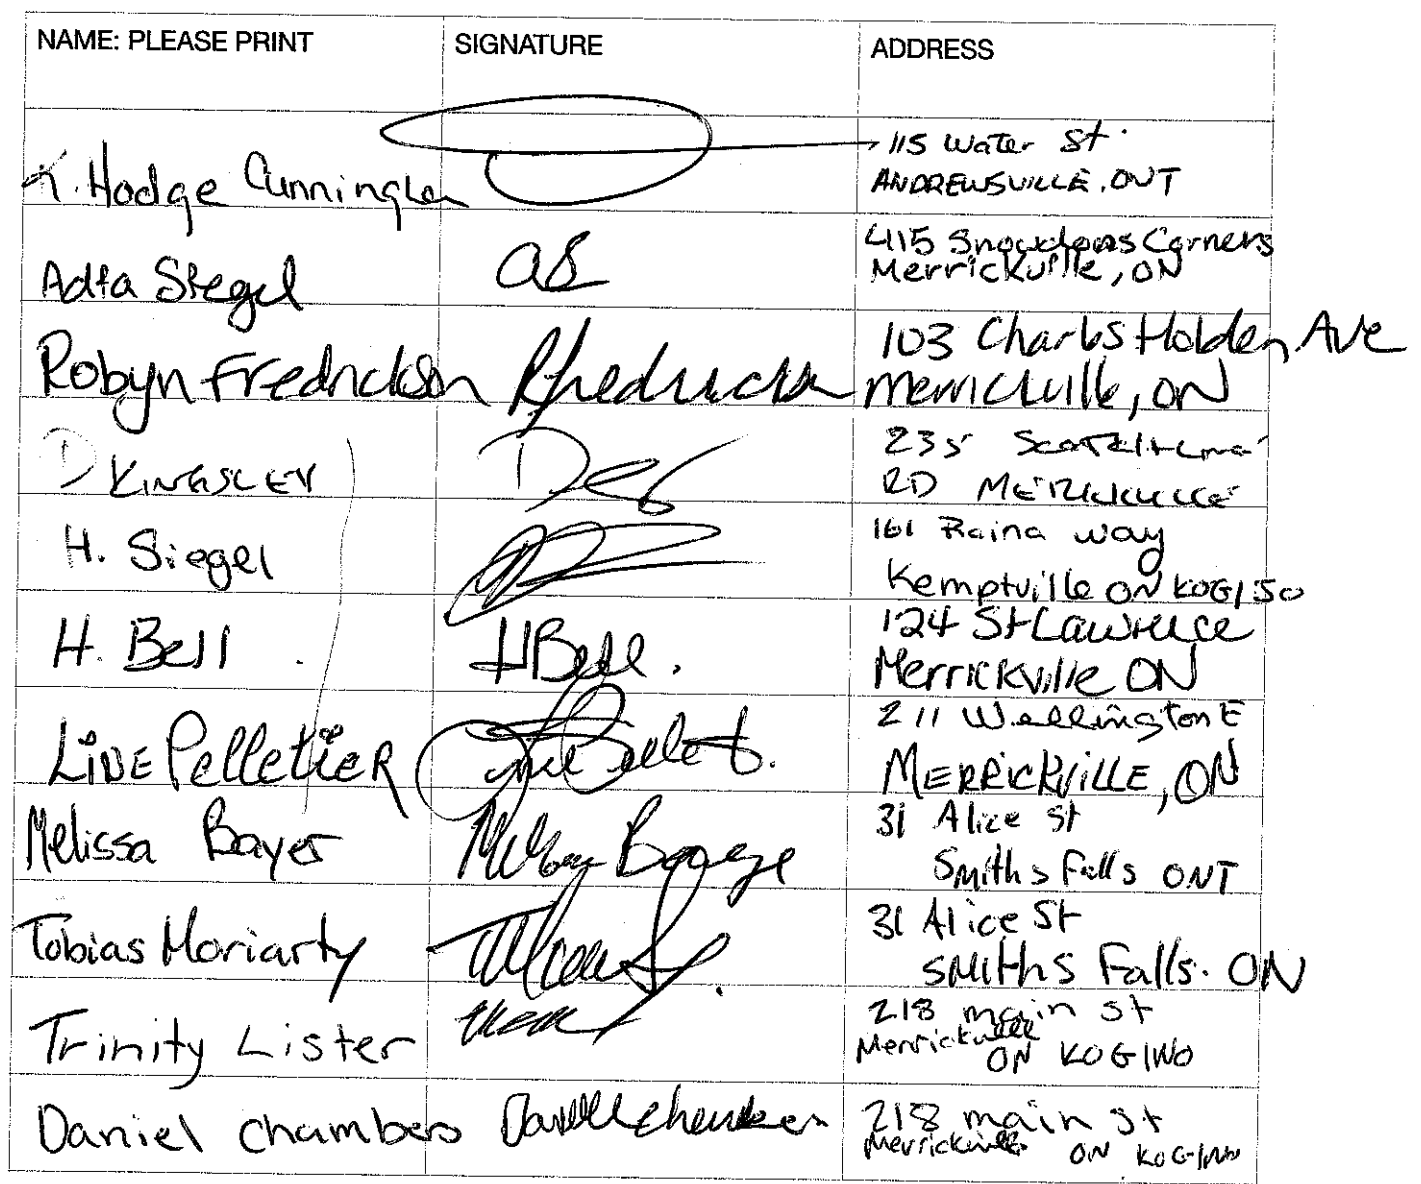 NAME: PLEASE PRINT SIGNATURE ADDRESS
K. Hodge Cunningham 115 Water St.
ANDREWSVILLE, ONT
Adta Siegel AS 415 Snowdons Corners
Merrickville, ON
Robyn Fredrickson RFredrickson 103 Charles Holden Ave
Merrickville, ON
D KINGSLEY 235
RD MERRICKVILLE
H. Siegel 161 Raina way
Kemptville ON K0G1J0
H. Bell HBell. 124 St Lawrence
Merrickville ON
LiNE Pelletier 211 Wellington E
MERRICKVILLE, ON
Melissa Bayer 31 Alice St
Smiths Falls ONT
Tobias Moriarty 31 Alice St
Smiths Falls. ON
Trinity Lister 218 main st
Merrickville
ON K0G1N0
Daniel chambers 218 main st
Merrickville ON K0G1N0